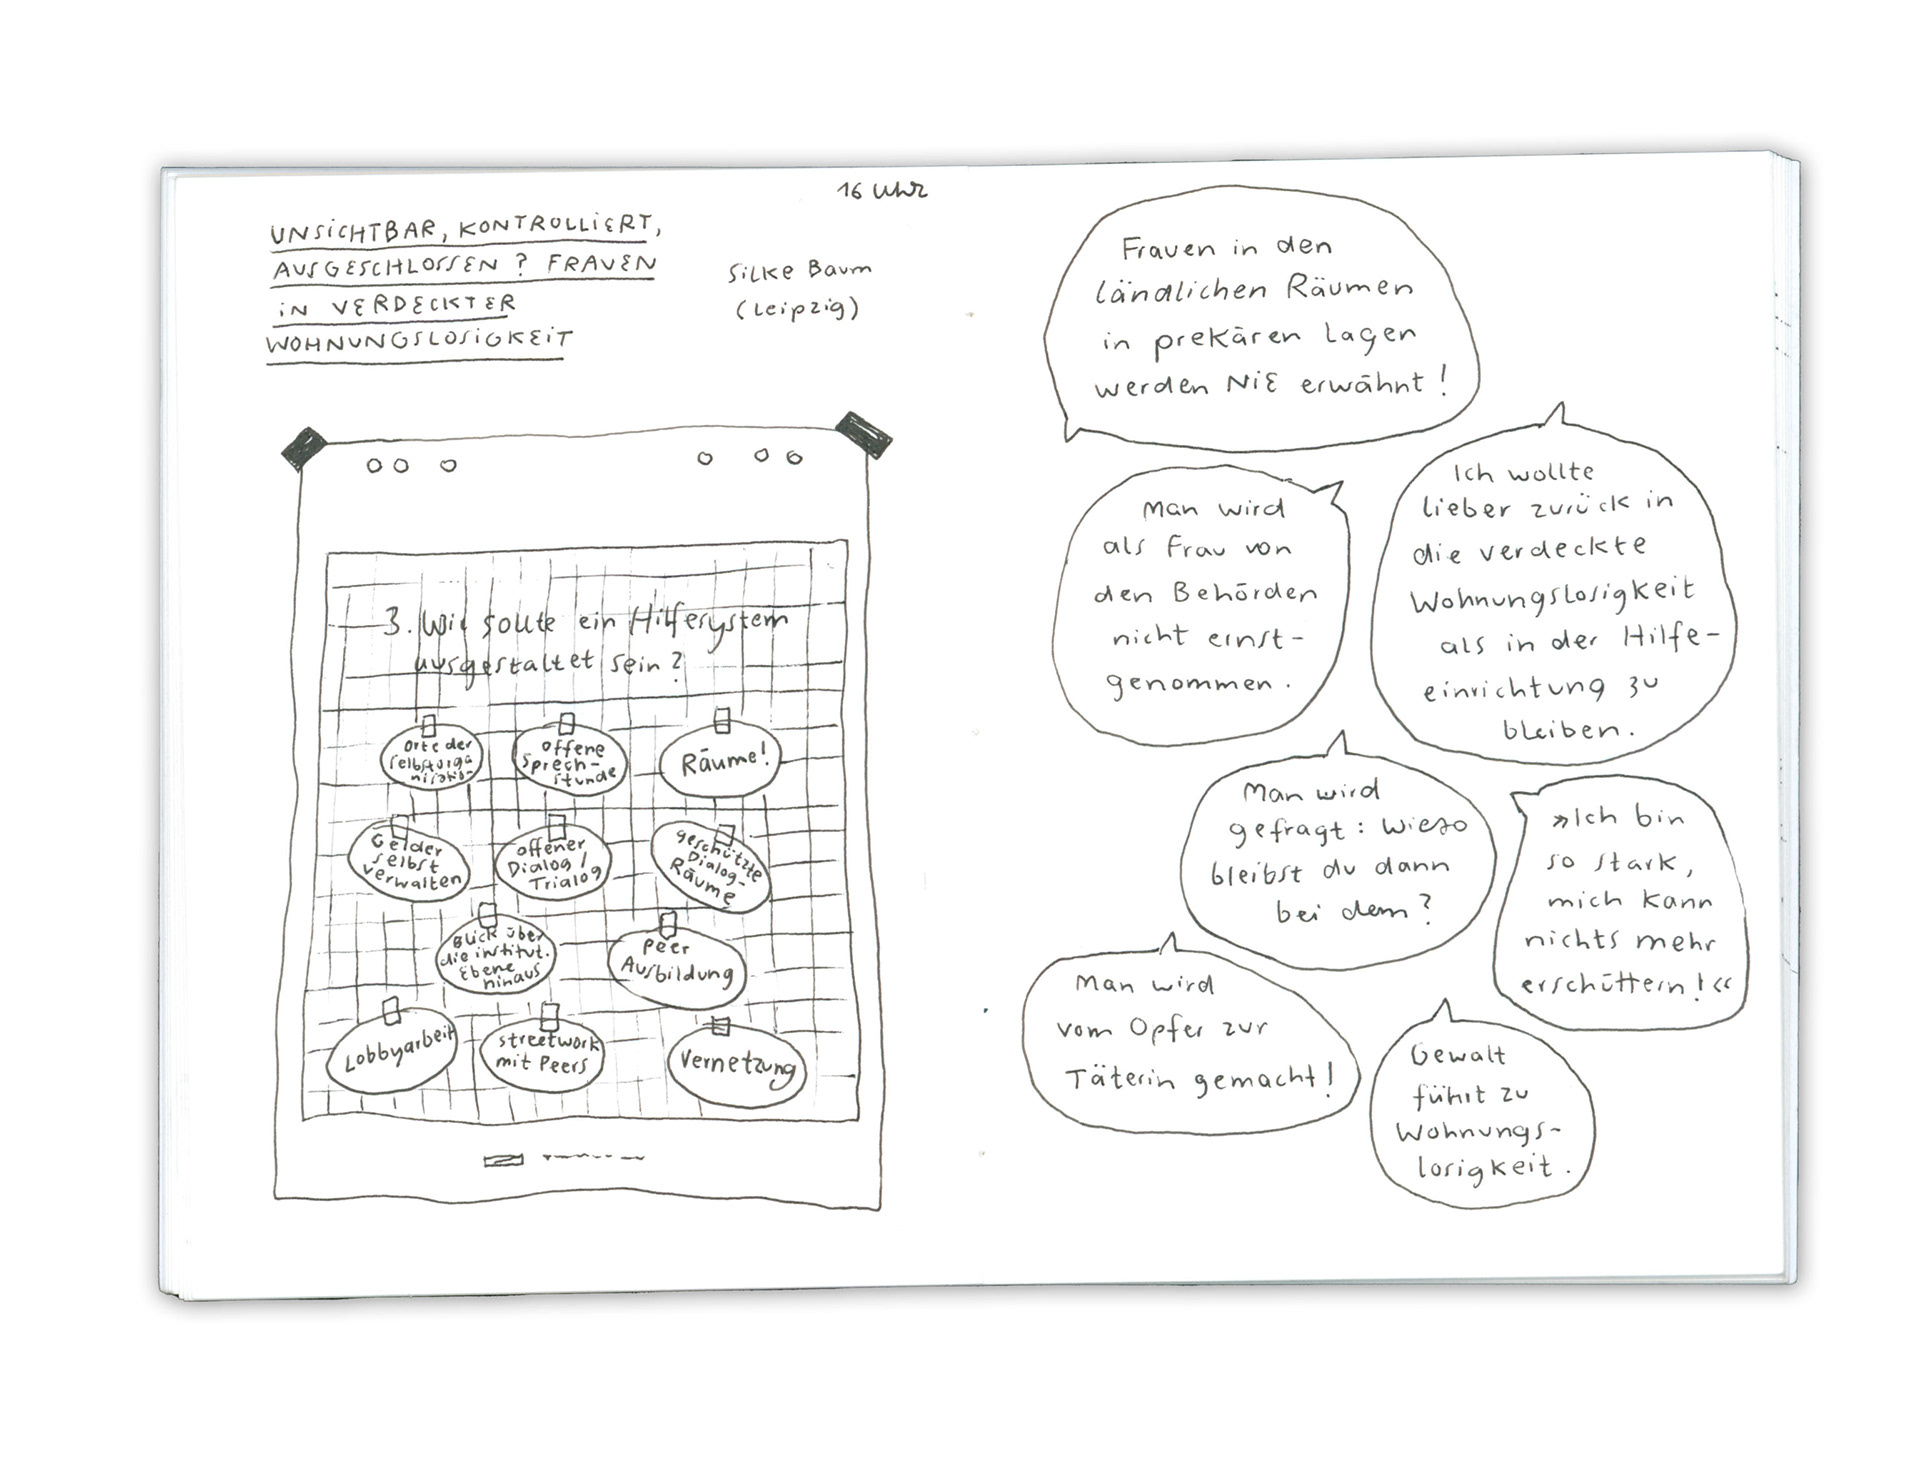 16 Uhr
UNSICHTBAR, KONTROLLIERT,
AUSGESCHLOSSEN? FRAUEN
IN VERDECKTER
WOHNUNGSLOSIGKEIT
Silke Baum
(Leipzig)
3. Wie sollte ein Hilfesystem
ausgestaltet sein?
Orte der
Selbstorga
nisatio-
offene
Sprech-
stunde
Räume!
Gelder
selbst
verwalten
offener
Dialog/
Trialog
geschützte
Dialog-
Räume
Blick über
die institut.
Ebene
hinaus
Peer
Ausbildung
Lobbyarbeit
Streetwork
mit Peers
Vernetzung
Frauen in den
ländlichen Räumen
in prekären Lagen
werden NIE erwähnt!
Man wird
als Frau von
den Behörden
nicht ernst-
genommen.
Ich wollte
lieber zurück in
die verdeckte
Wohnungslosigkeit
als in der Hilfe-
einrichtung zu
bleiben.
Man wird
gefragt: Wieso
bleibst du dann
bei dem?
»Ich bin
so stark,
mich kann
nichts mehr
erschüttern!«
Man wird
vom Opfer zur
Täterin gemacht!
Gewalt
führt zu
Wohnungs-
losigkeit.